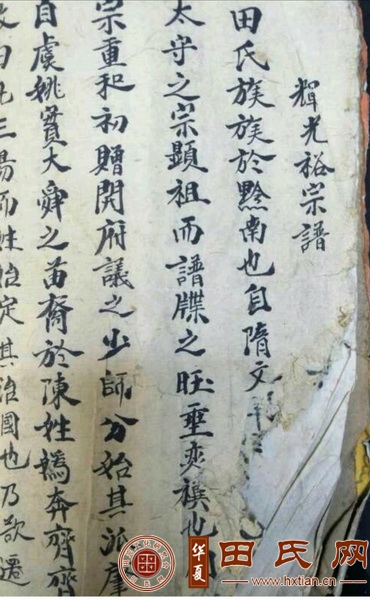 輝光裕宗譜
田氏族族於黔南也自隋文
太守之宗顯祖而譜牒之旺垂奕禩也
宗重和初贈開府議之少師分始其派
自虞姚實大舜之苗裔於陳姓媯奔齊齊
三易而姓始定其治國也乃欲遷
华夏
田氏网
www.hxtian.cn